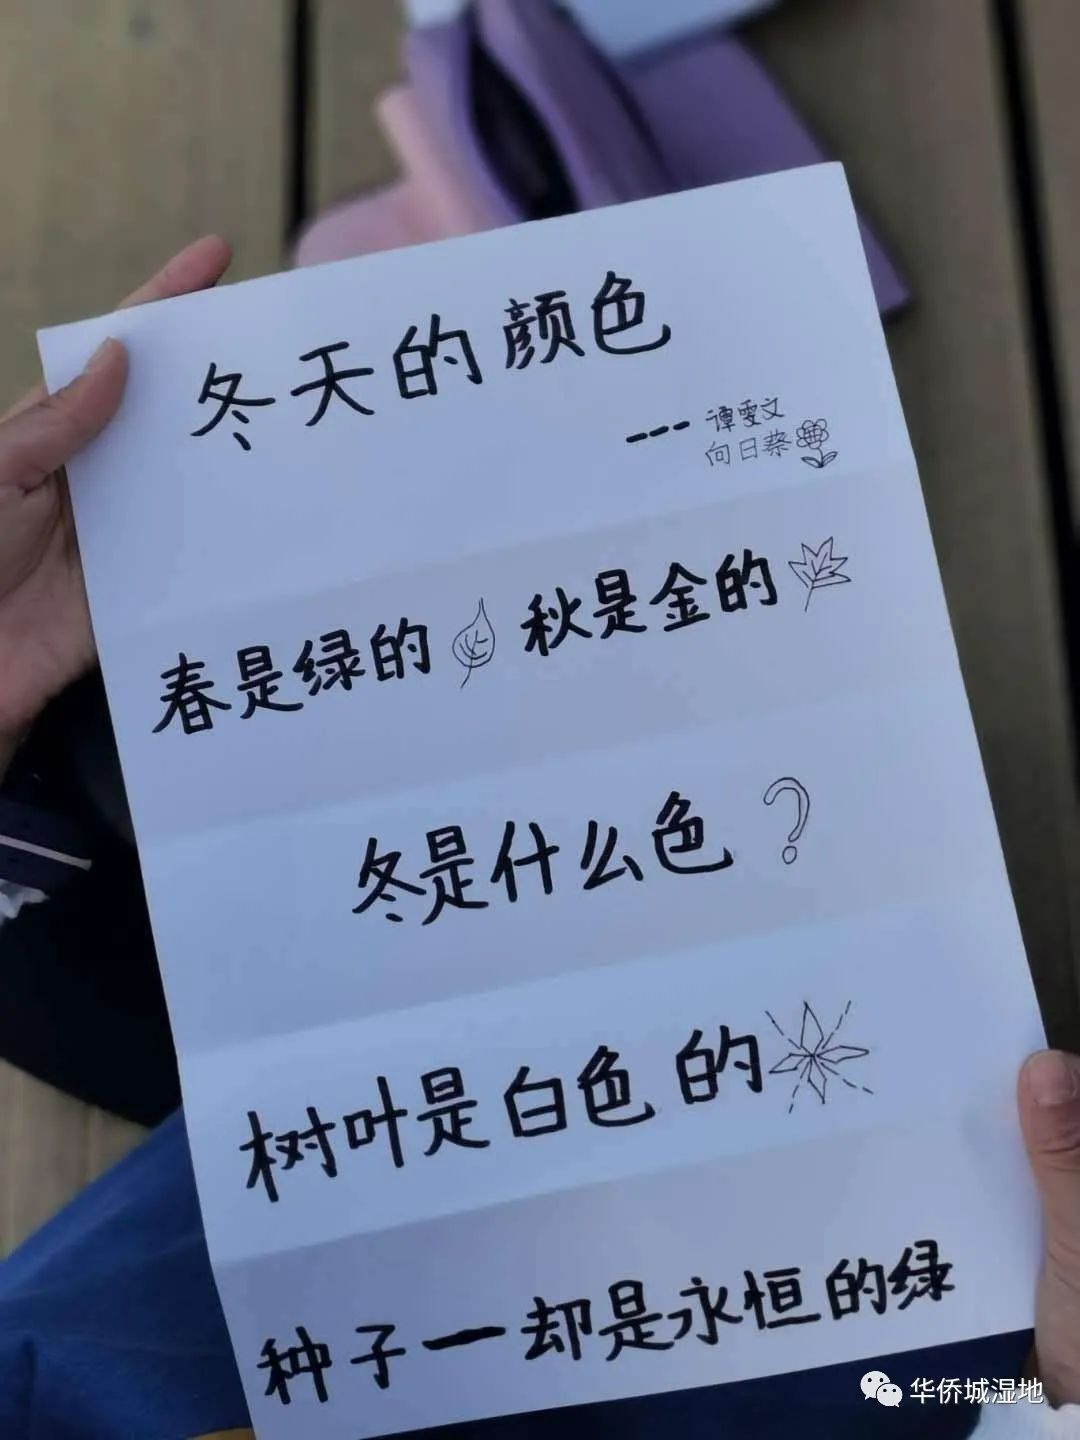 冬天的颜色
--- 谭雯文
向日葵
春是绿的 秋是金的
冬是什么色?
树叶是白色的
种子一却是永恒的绿
华侨城湿地